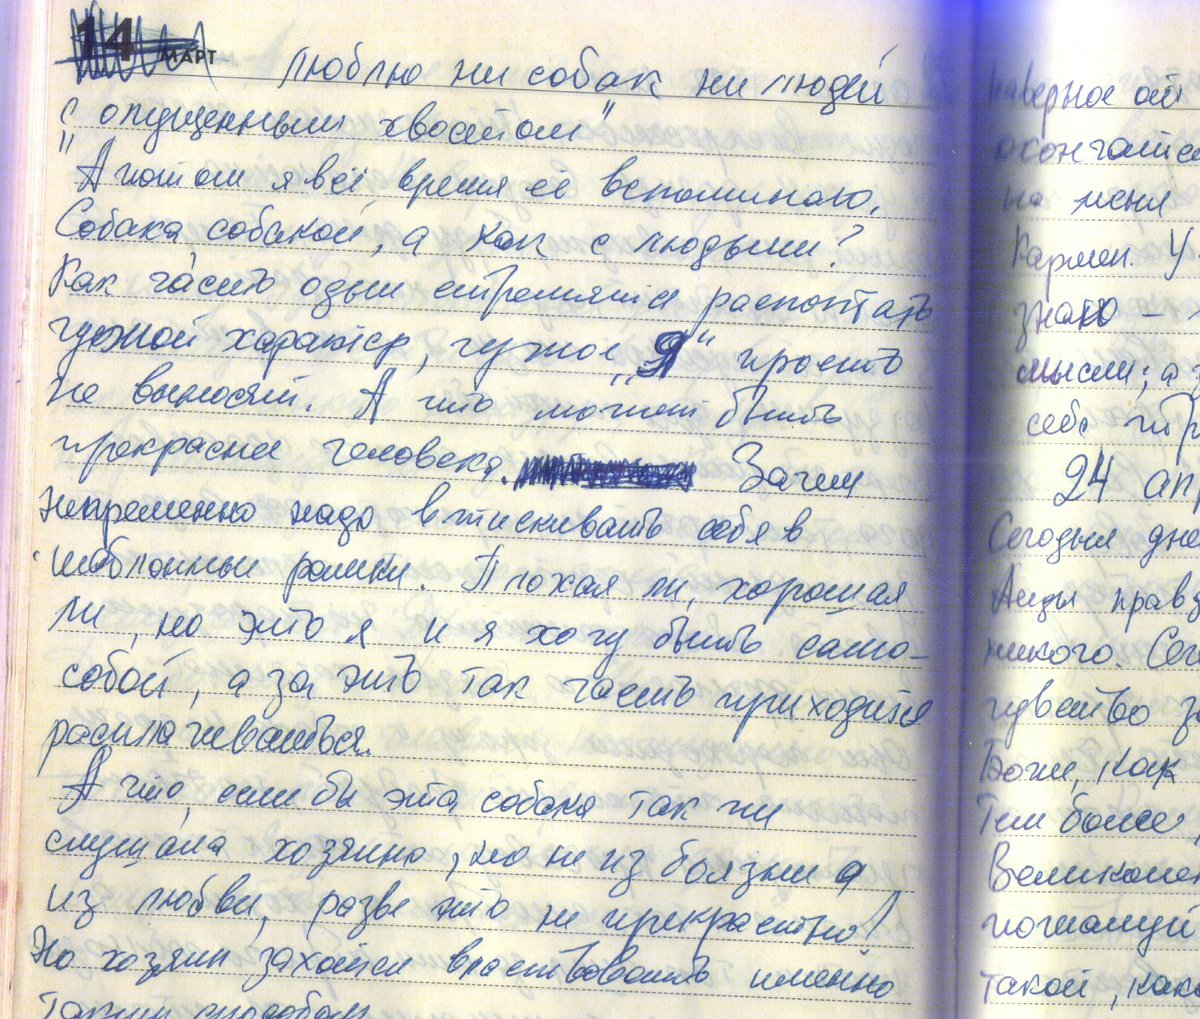 14 МАРТ
люблю ни собак ни людей
с опущенным хвостом"
"А потом я всё время её вспоминаю.
Собака, собакой, а как с людьми?
Как часто одни стремятся растоптать
чужой характер, чужое „Я" просто
не выносят. А что может быть
прекрасней человека. Зачем
непременно надо втискивать себя в
шаблонные рамки. Плохая ли, хорошая
ли, но это я и я хочу быть само-
собой, а за это так часто приходится
расплачиваться.
А что, если бы эта собака так же
слушала хозяина, но не из боязни а
из любви, разве это не прекрастно!
Но хозяин захотел властвовать именно
таким способом
наверное от
на меня
Кармен. У
знаю –
мысли, а
себе
24 ап
Сегодня дне
Аиды прав
никого. Сег
чувство за
Боже, как
Тем более,
Великолеп
пожалуй
такой, како